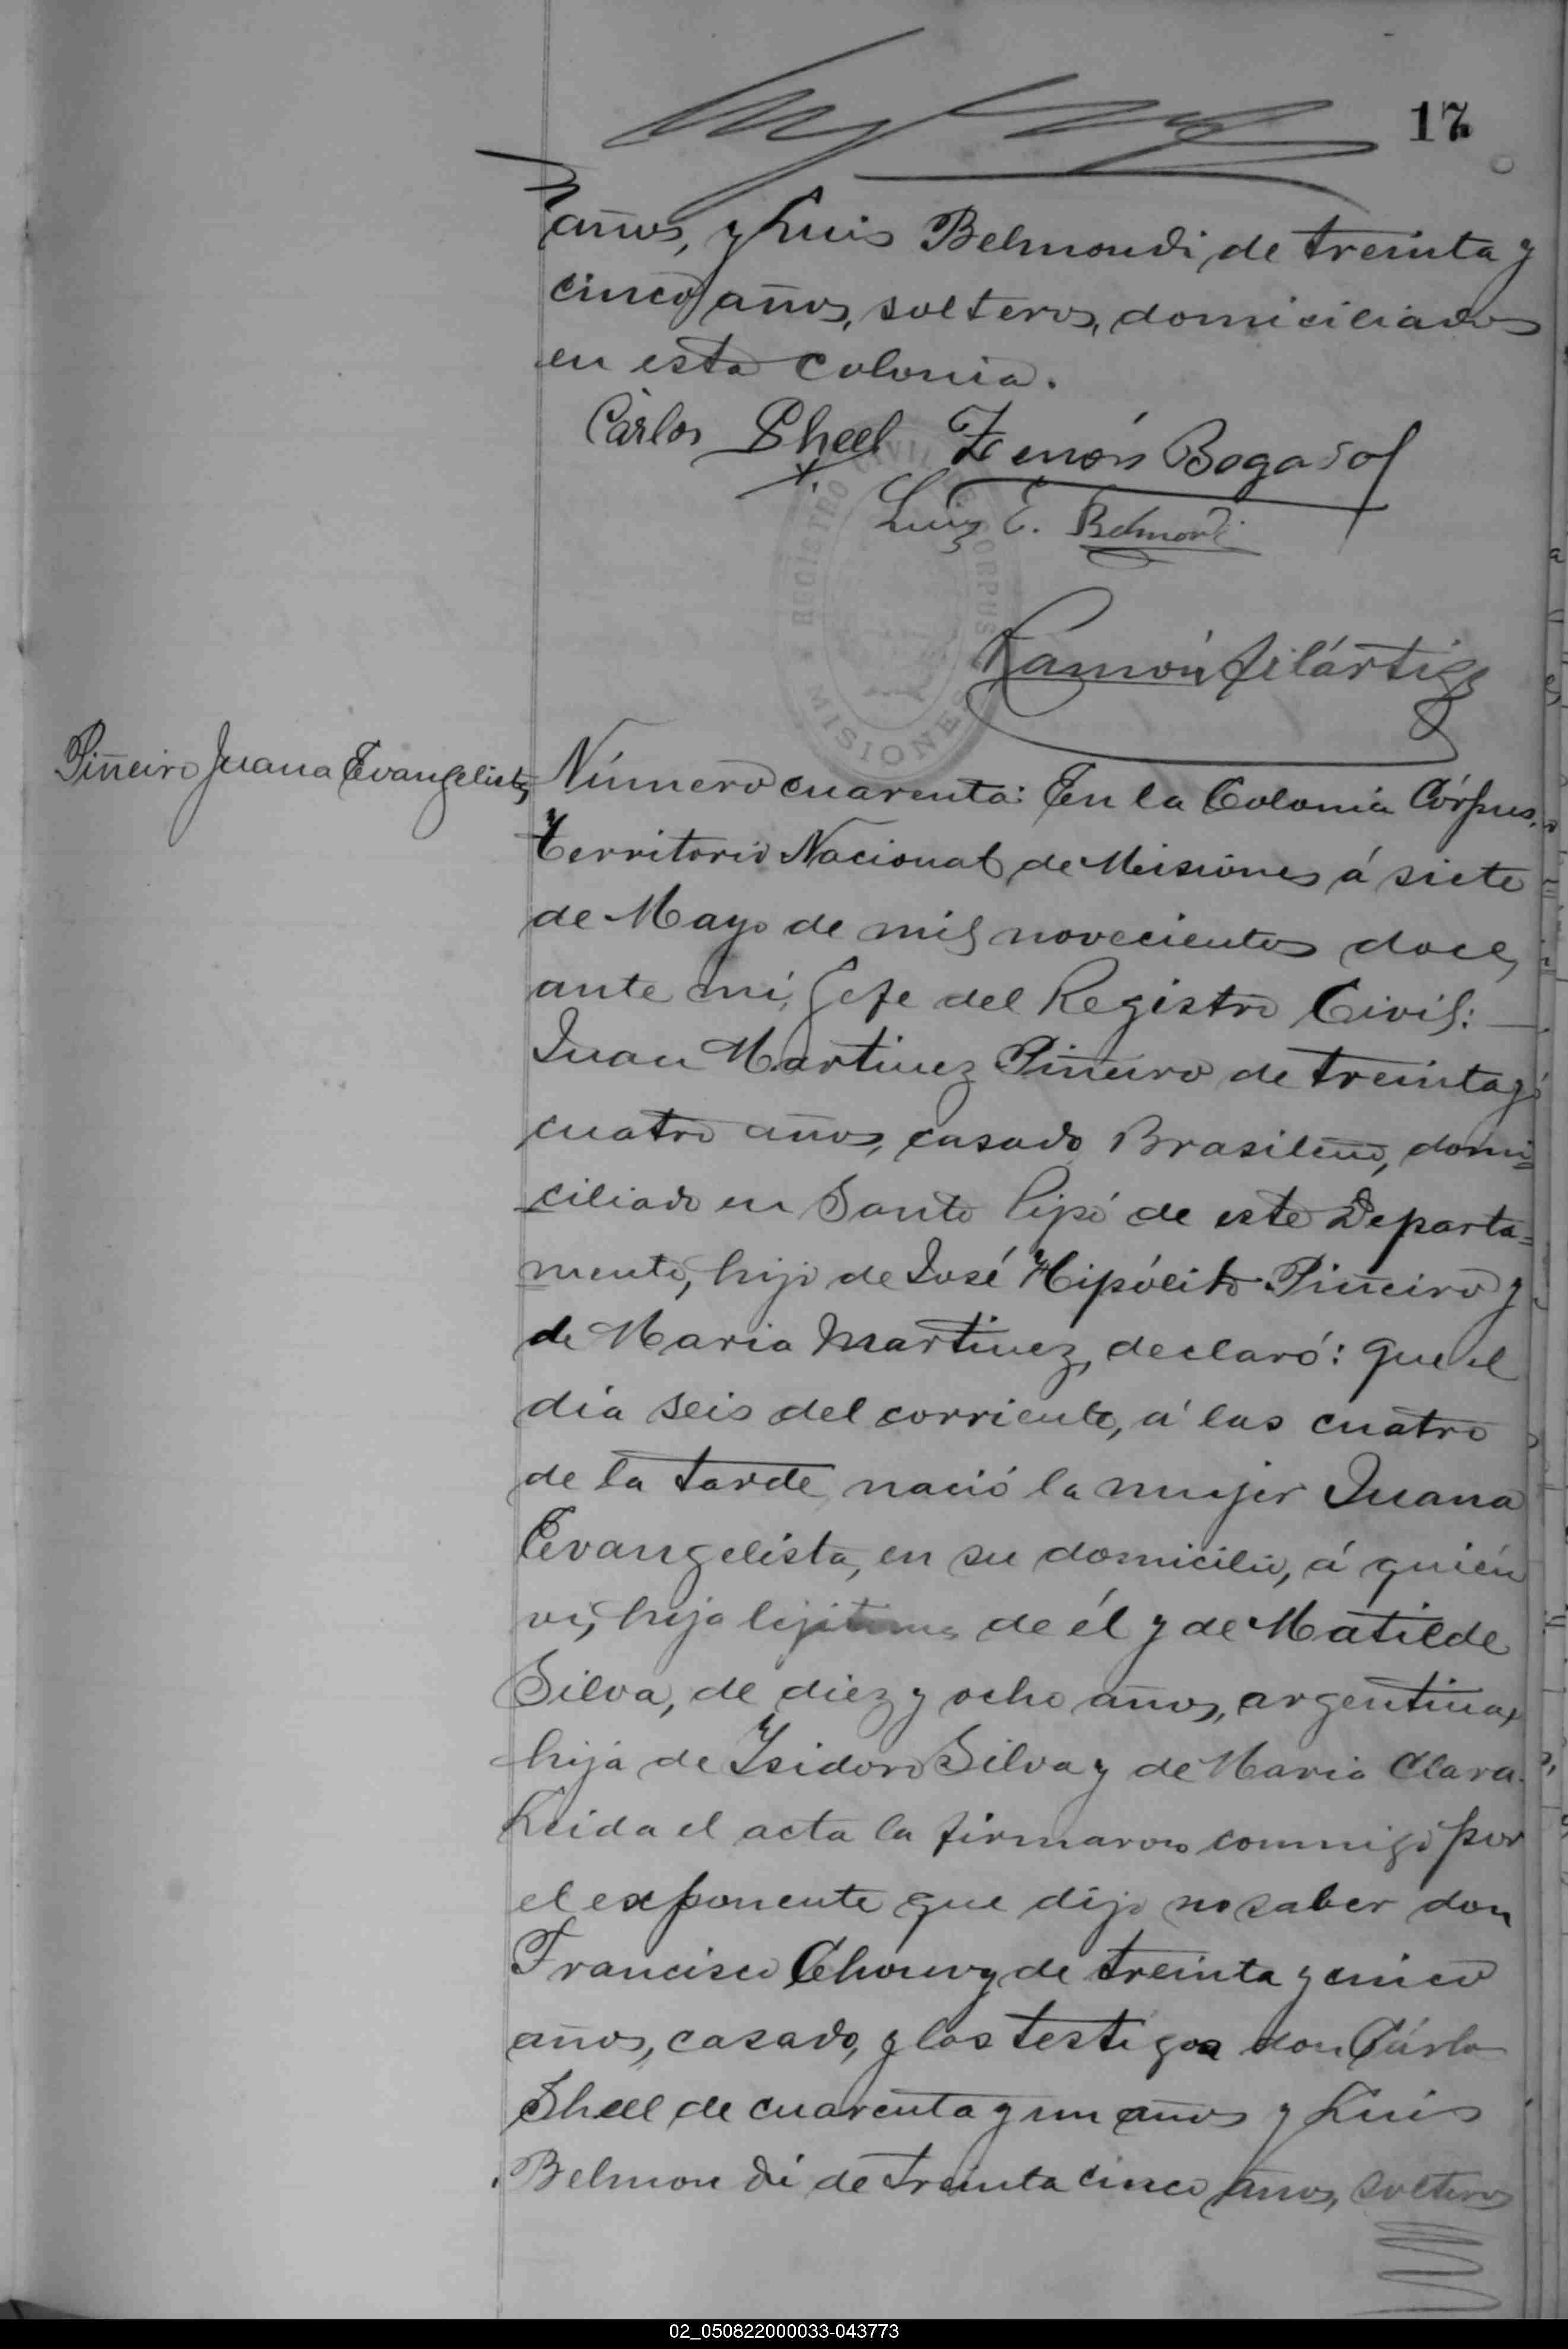 17
años, y Luis Belmondi, de treinta y
cinco años, solteros, domiciliados
en esta Colonia.
Cárlos Sheel Zenón Bogado
Luis E. Belmondi
REGISTRO CIVIL DE CORPUS
MISIONES
Ramón Filártiga
Piñeiro Juana Evangelista
Número cuarenta: En la Colonia Córpus,
Territorio Nacional de Misiones á siete
de Mayo de mil novecientos doce,
ante mí, Gefe del Registro Civil:
Juan Martinez Piñeiro de treinta y
cuatro años, casado, Brasileño, domi=
ciliado en Santo Pipó de este Departa=
mento, hijo de José Hipólito Piñeiro y
de Maria Martinez, declaró: que el
dia seis del corriente, á las cuatro
de la tarde nació la mujer Juana
Evangelista, en su domicilio, á quién
ví, hija lejitima de él y de Matilde
Silva, de diez y ocho años, argentina,
hija de Ysidoro Silva y de Maria Clara.
Leida el acta la firmaron conmigo por
el exponente que dijo no saber don
Francisco Chouvy de treinta y cinco
años, casado, y los testigos don Cárlos
Sheel de cuarenta y un años y Luis
Belmondi de treinta cinco años, solteros
02_050822000033-043773